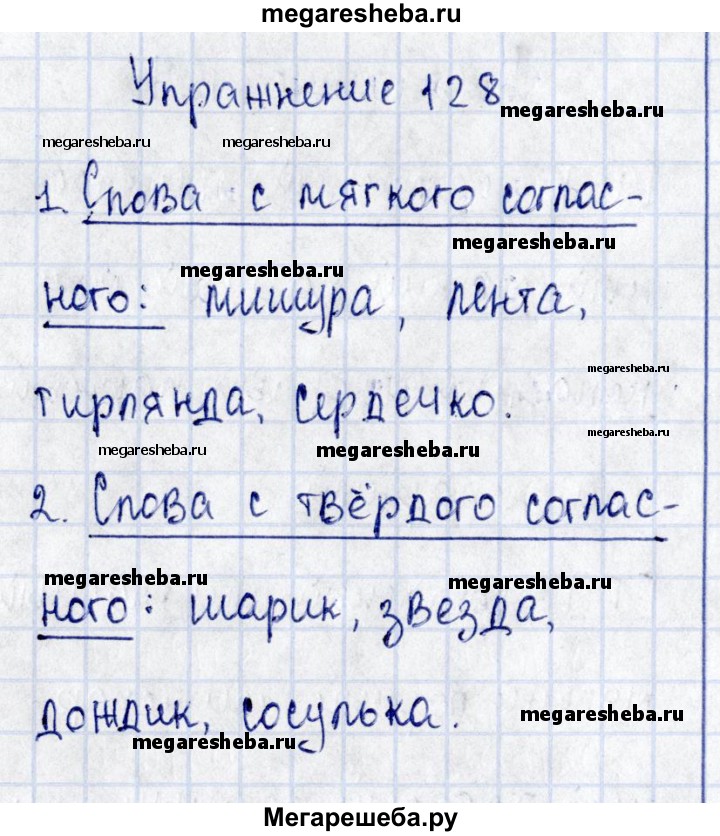 megaresheba.ru
Упражнение 128
megaresheba.ru
megaresheba.ru megaresheba.ru
1. Слова с мягкого соглас-
megaresheba.ru
megaresheba.ru
ного: мишура, лента,
megaresheba.ru
гирлянда, сердечко.
megaresheba.ru
megaresheba.ru megaresheba.ru
2. Слова с твёрдого соглас-
megaresheba.ru megaresheba.ru
ного: шарик, звезда,
дождик, сосулька.
megaresheba.ru
megaresheba.ru
Мегарешеба.ру